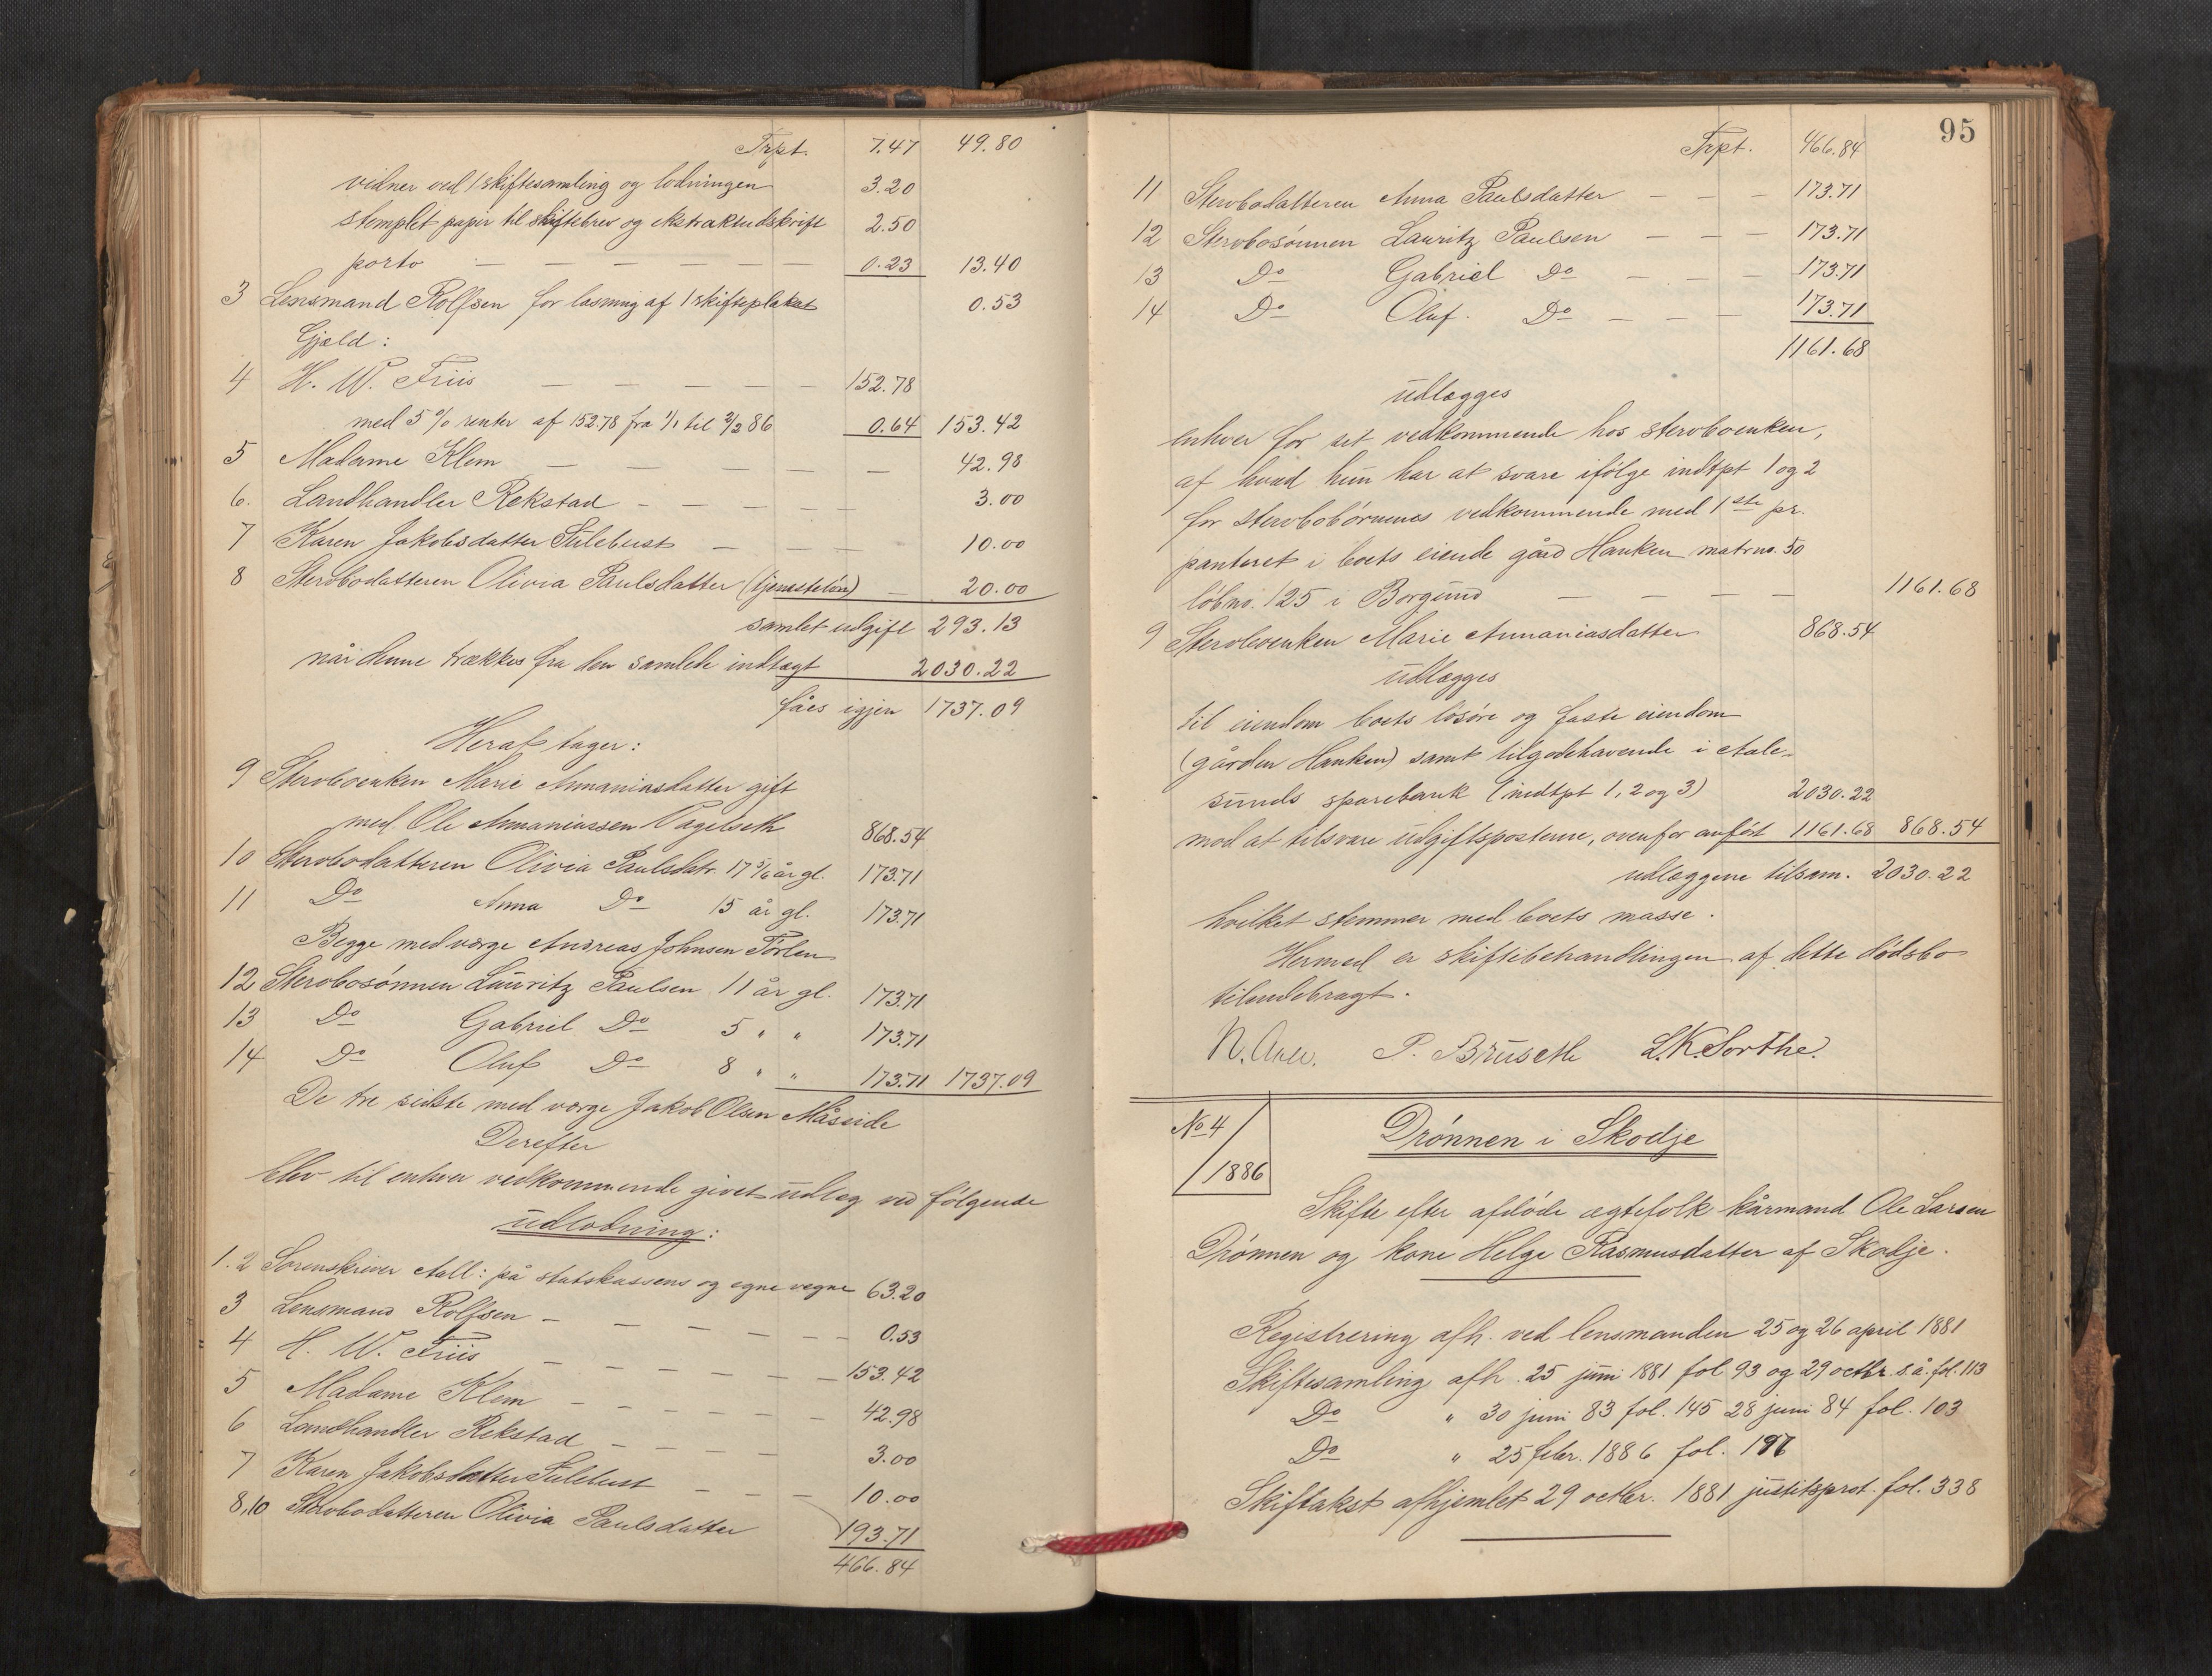 Trpt. 7.47 49.80
vidner ved 1 skiftesamling og lodningen 3.20
stemplet papir til skiftebrev og ekstraktudskrift 2.50
porto — — — — — — 0.23 13.40
3 Lensmand Rolfsen for læsning af 1 skifteplakat 0.53
Gjæld:
4 H. W. Friis — — — — — 152.78
med 5 % renter af 152.78 fra 1/1 til 2/2 86 0.64 153.42
5 Madame Klem — — — — — 42.98
6. Landhandler Rekstad — — — — — 3.00
7 Karen Jakobsdatter Sulebust — — — 10.00
8 Stervbodatteren Olivia Paulsdatter (tjenesteløn) — 20.00
samlet udgift 293.13
når denne trækkes fra den samlede indtægt 2030.22
fåes igjen 1737.09
Heraf tager:
9 Stervboenken Marie Annaniasdatter gift
med Ole Annaniassen Vagelseth 868.54
10 Stervbodatteren Olivia Paulsdatr. 17 5/6 år gl. 173.71
11 Do Anna Do 15 år gl. 173.71
Begge med værge Andreas Johnsen Tørlen
12 Stervbosønnen Lauritz Paulsen 11 år gl. 173.71
13 Do Gabriel Do 5 " " 173.71
14 Do Oluf Do 8 " " 173.71 1737.09
De tre sidste med værge Jakob Olsen Måseide
Derefter
blev til enhver vedkommende givet udlæg ved følgende
udlodning:
1.2 Sorenskriver Aall: på statskassens og egne vegne 63.20
3 Lensmand Rolfsen — — — — — — 0.53
4 H. W. Friis — — — — — 153.42
5 Madame Klem — — — — — — 42.98
6 Landhandler Rekstad — — — — 3.00
7 Karen Jakobsdatter Sulebust — — — 10.00
8,10 Stervbodatteren Olivia Paulsdatter 193.71
466.84
95
Trpt. 466.84
11 Stervbodatteren Anna Paulsdatter — — — 173.71
12 Stervbosønnen Lauritz Paulsen — — — 173.71
13 Do Gabriel Do — — — 173.71
14 Do Oluf. Do — — — 173.71
1161.68
udlægges
enhver for sit vedkommende hos stervboenken,
af hvad hun har at svare ifølge indtpt 1 og 2
for stervbobørnenes vedkommende med 1ste pr.
panteret i boets eiende gård Hanken matrno. 50
løbno. 125 i Borgund — — — — 1161.68
9 Stervboenken Marie Annaniasdatter 868.54
udlægges
til eiendom boets løsøre og faste eiendom
(gården Hanken) samt tilgodehavende i Aale-
sunds sparebank (indtpt 1, 2 og 3) 2030.22
mod at tilsvare udgiftsposterne, ovenfor anført 1161.68 868.54
udlæggene tilsam. 2030.22
hvilket stemmer med boets masse.
Hermed er skiftebehandlingen af dette dødsbo
tilendebragt.
P. Bruseth L.K. Sorthe.
No 4/1886
Drønnen i Skodje
Skifte efter afdøde ægtefolk kårmand Ole Larsen
Drønnen og kone Helge Rasmusdatter af Skodje.
Registrering afh. ved lensmanden 25 og 26 april 1881
Skiftesamling afh. 25 juni 1881 fol 93 og 29 octbr. s.å. fol. 113
Do " 30 juni 83 fol. 145 28 juni 84 fol. 103
Do " 25 febr. 1886 fol.
Skiftakst afhjemlet 29 octbr. 1881 justitsprot. fol. 338